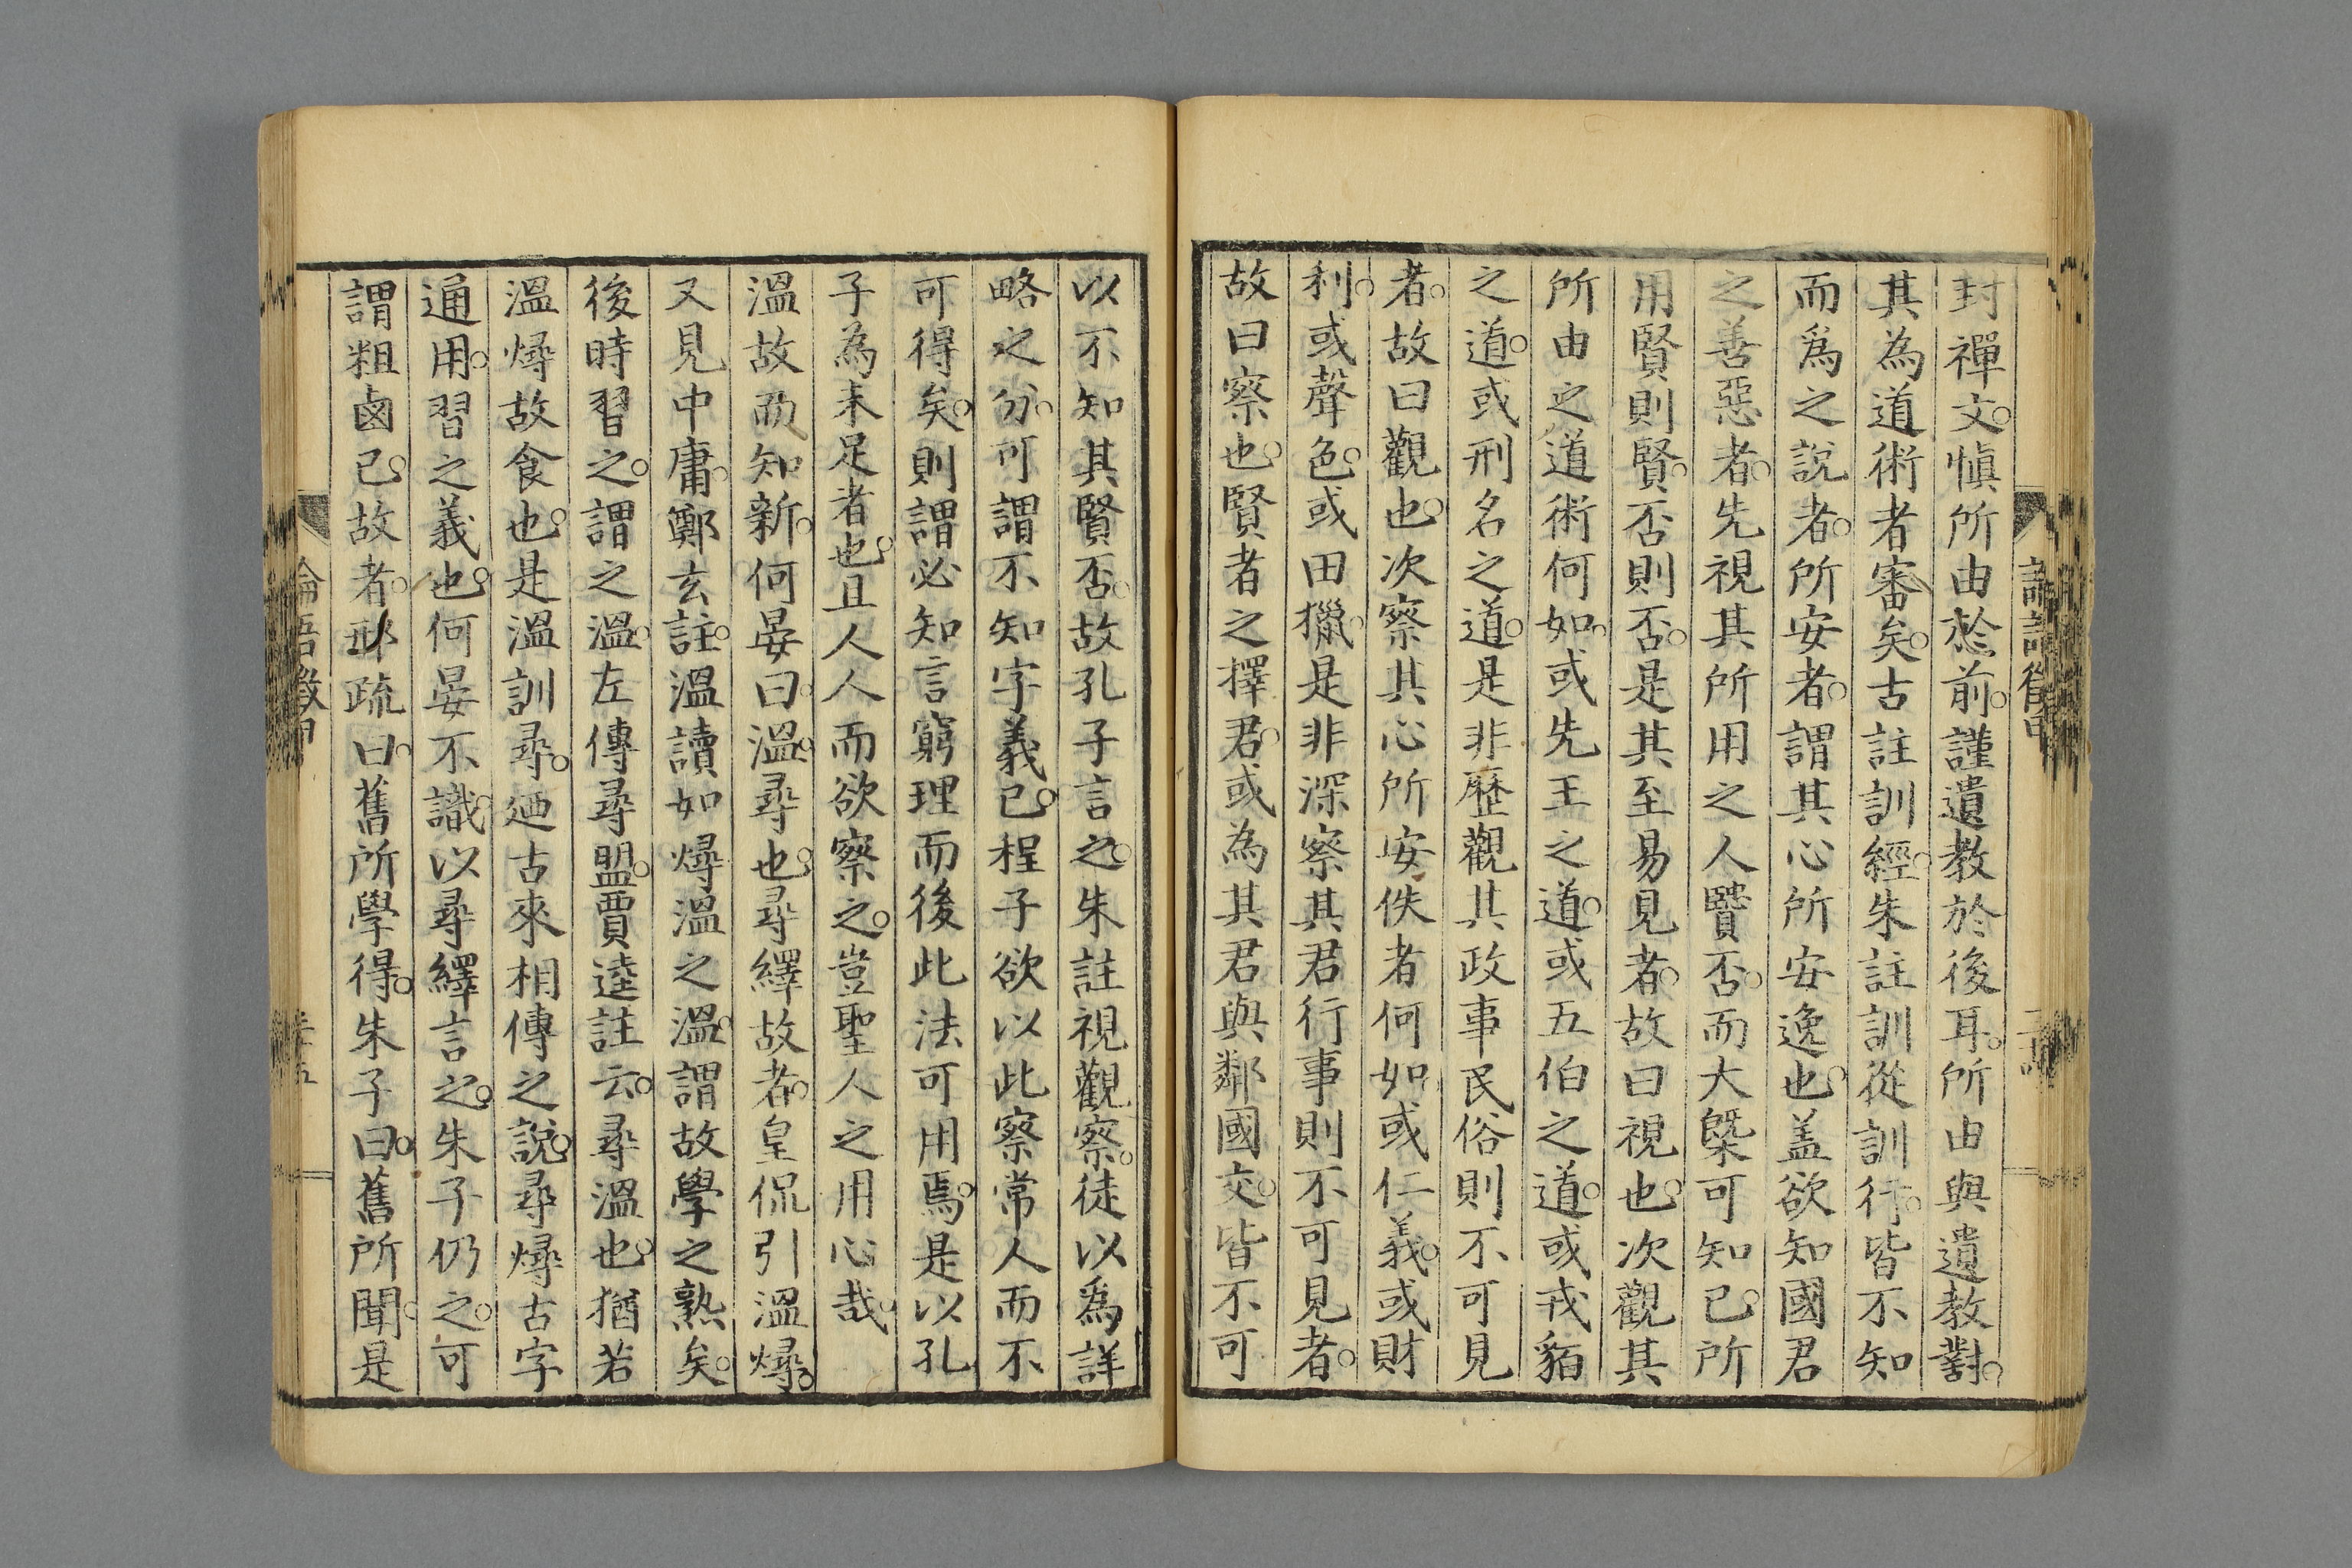 封禪文。愼所由於前。謹遺教於後耳。所由與遺教對。
其為道術者審矣。古註訓經。朱註訓從訓行。皆不知
而爲之說者。所安者。謂其心所安逸也。盖欲知國君
之善惡者。先視其所用之人賢否。而大槩可知已。所
用賢則賢。否則否。是其至易見者。故曰視也。次觀其
所由之道術何如。或先王之道。或五伯之道。或戎貊
之道。或刑名之道。是非歷觀其政事民俗則不可見
者。故曰觀也。次察其心所安佚者何如。或仁義。或財
利。或聲色。或田獵。是非深察其君行事則不可見者。
故曰察也。賢者之擇君。或為其君與鄰國交。皆不可
以不知其賢否。故孔子言之。朱註視觀察。徒以爲詳
略之分。可謂不知字義已。程子欲以此察常人而不
可得矣。則謂必知言窮理而後此法可用焉。是以孔
子為未足者也。且人人而欲察之。豈聖人之用心哉。
溫故而知新。何晏曰。溫。尋也。尋繹故者。皇侃引溫燖。
又見中庸。鄭玄註。溫讀如燖溫之溫。謂故學之熟矣。
後時習之。謂之溫。左傳尋盟。賈逵註云。尋溫也。猶若
溫燖故食也。是溫訓尋。迺古來相傳之說。尋燖古字
通用。習之義也。何晏不識。以尋繹言之。朱子仍之。可
謂粗鹵已。故者。邢疏曰。舊所學得。朱子曰。舊所聞。是
論語徵甲